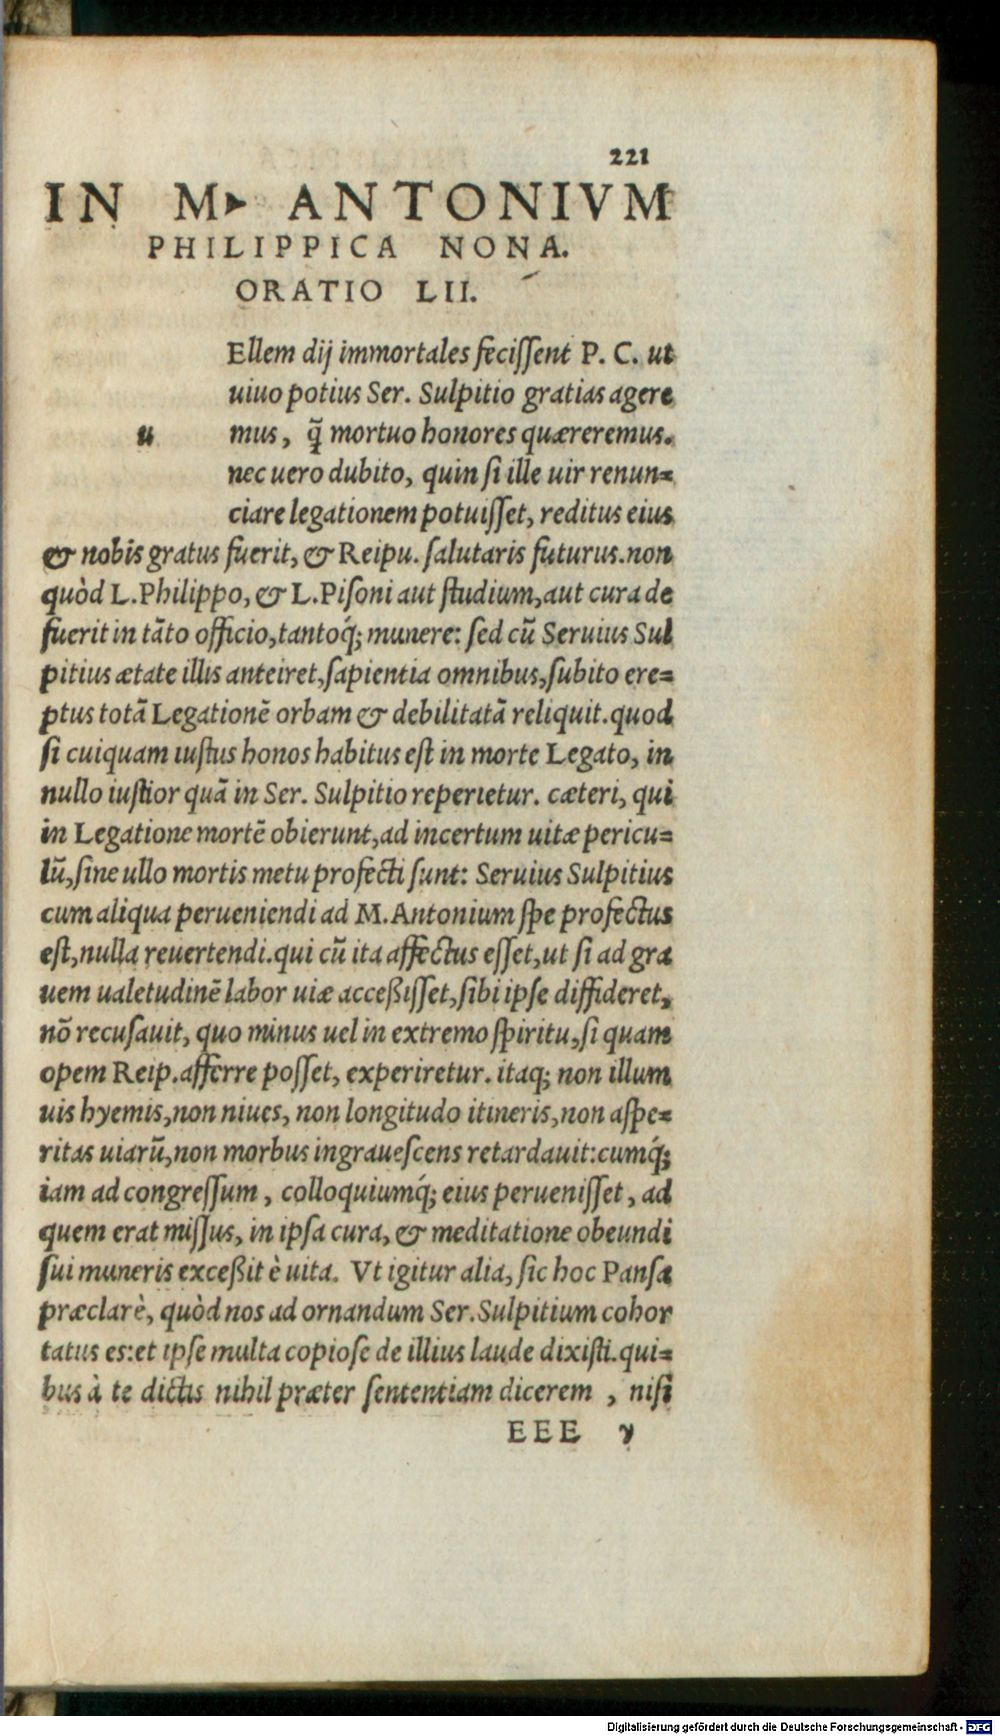 221
IN M. ANTONIVM
PHILIPPICA NONA.
ORATIO LII.
u
Ellem dij immortales feciſſent P. C. ut
uiuo potius Ser. Sulpitio gratias agere
mus, q̃ mortuo honores quæreremus.
nec uero dubito, quin ſi ille uir renun=
ciare legationem potuiſſet, reditus eius
& nobis gratus fuerit, & Reipu. ſalutaris futurus.non
quòd L.Philippo, & L.Piſoni aut ſtudium,aut cura de
fuerit in tãto officio,tantoq́; munere: ſed cũ Seruius Sul
pitius ætate illis anteiret,ſapientia omnibus,ſubito ere=
ptus totã Legationẽ orbam & debilitatã reliquit.quod
ſi cuiquam iuſtus honos habitus eſt in morte Legato, in
nullo iuſtior quã in Ser. Sulpitio reperietur. cæteri, qui
in Legatione mortẽ obierunt,ad incertum uitæ pericu=
lũ,ſine ullo mortis metu profecti ſunt: Seruius Sulpitius
cum aliqua perueniendi ad M.Antonium ſpe profectus
eſt,nulla reuertendi.qui cũ ita affectus eſſet,ut ſi ad gra
uem ualetudinẽ labor uiæ acceßiſſet,ſibi ipſe diffideret,
nõ recuſauit, quo minus uel in extremo ſpiritu,ſi quam
opem Reip.afferre poſſet, experiretur. itaq; non illum
uis hyemis,non niues, non longitudo itineris,non aſpe=
ritas uiarũ,non morbus ingraueſcens retardauit:cumq́;
iam ad congreſſum, colloquiumq́; eius perueniſſet, ad
quem erat miſſus, in ipſa cura, & meditatione obeundi
ſui muneris exceßit è uita. Vt igitur alia, ſic hoc Panſa
præclarè, quòd nos ad ornandum Ser.Sulpitium cohor
tatus es:et ipſe multa copioſe de illius laude dixiſti.qui=
bus à te dictis nihil præter ſententiam dicerem , niſi
EEE v
Digitalisierung gefördert durch die Deutsche Forschungsgemeinschaft - DFG